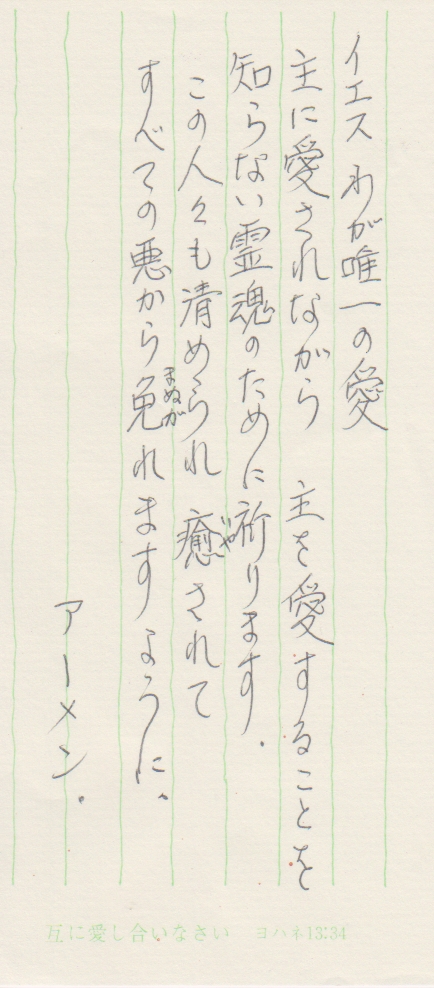 イエス わが唯一の愛
主に愛されながら 主を愛することを
知らない霊魂のために祈ります.
この人々も清められ 癒されて
すべての悪から免れますように.
まぬが
いや
アーメン.
互に愛し合いなさい ヨハネ13:34